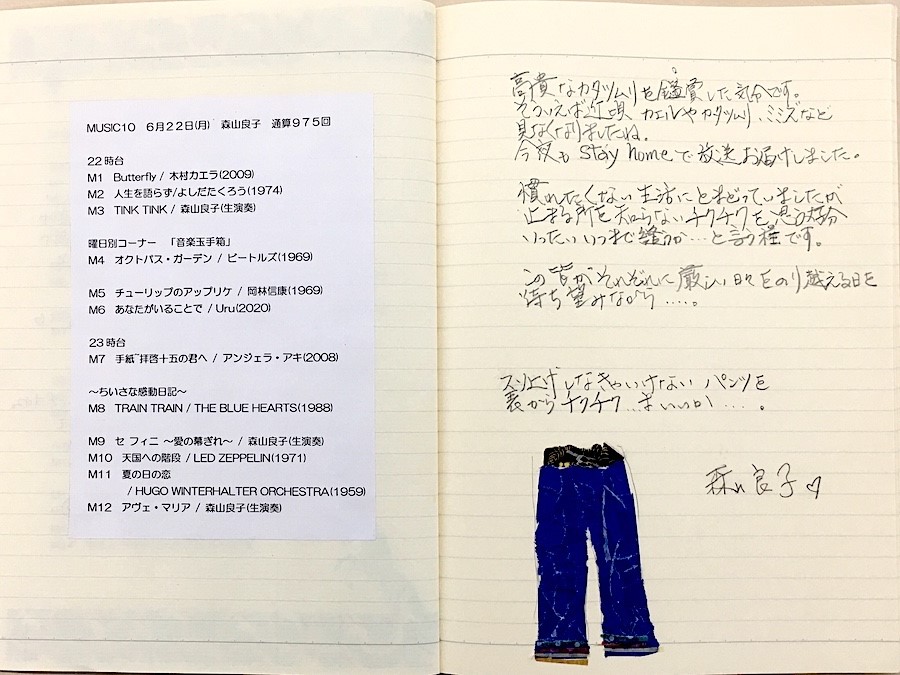 MUSIC10 6月22日(月) 森山良子 通算975回
22時台
M1 Butterfly / 木村カエラ(2009)
M2 人生を語らず/よしだたくろう(1974)
M3 TINK TINK / 森山良子(生演奏)
曜日別コーナー 「音楽玉手箱」
M4 オクトパス・ガーデン / ビートルズ(1969)
M5 チューリップのアップリケ / 岡林信康(1969)
M6 あなたがいることで / Uru(2020)
23時台
M7 手紙~拝啓十五の君へ / アンジェラ・アキ(2008)
～ちいさな感動日記～
M8 TRAIN TRAIN / THE BLUE HEARTS(1988)
M9 セ フィニ ～愛の幕ぎれ～ / 森山良子(生演奏)
M10 天国への階段 / LED ZEPPELIN(1971)
M11 夏の日の恋
/ HUGO WINTERHALTER ORCHESTRA(1959)
M12 アヴェ・マリア / 森山良子(生演奏)
高貴なカタツムリを鑑賞した気分です。
そういえば近頃 カエルやカタツムリ、ミミズなど
見なくなりましたね。
今夜も stay homeで放送お届けしました。
慣れたくない生活にとまどっていましたが
止まる所を知らないチクチクを思う存分
いったいいつまで縫うか…と言う程です。
この皆がそれぞれに厳しい日々をのり越える日を
待ち望みながら……。
スソ上げしなきゃいけない パンツを
裏から チクチク…まいいか…。
森山良子♡